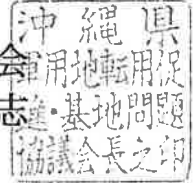 沖縄県
軍用地転用促
進・基地問題
協議会長之印
会
志